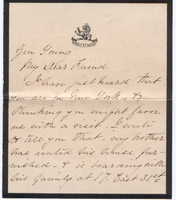 Gen Young
My Dear Friend
I have just heard that
you are in New York, &
thinking you might favor
me with a visit. I write
to tell you that my brother
has rented his house fur-
nished & is boarding with
his family at 17. East 31st